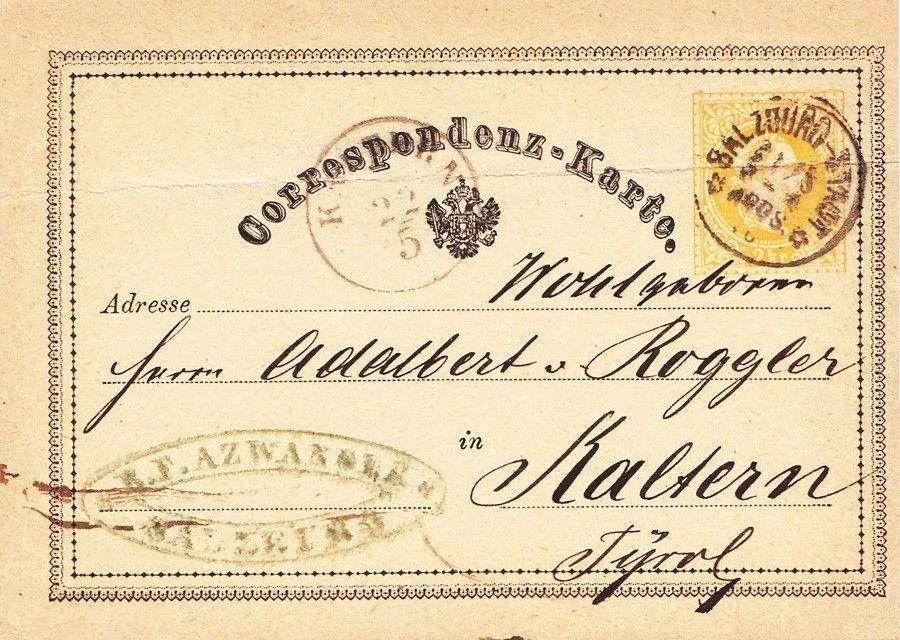 Correspondenz-Karte.
SALZBURG-
22
5
Adresse
Wohlgeboren
Herrn Adalbert v. Roggler
in
Kaltern
Tyrol
SALZBURG